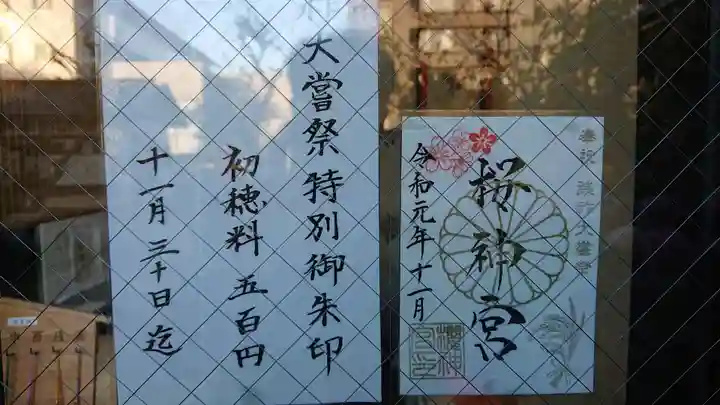 大嘗祭特別御朱印
初穂料 五百円
十一月三十日迄
奉祝 践祚大嘗祭
桜神宮
令和元年十一月